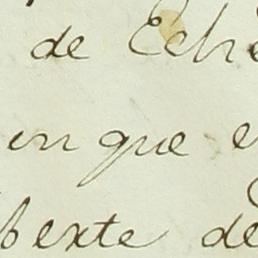 de Eche
en que e
bexte de